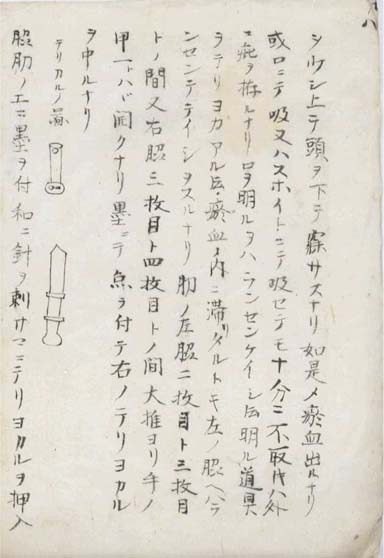 シウシ上テ頭ヲ下テ寐サスナリ如是〆瘀血出ルナリ
或ロニテ吸又ハスホイトニテ吸セテモ十分ニ不取時ハ外
ニ疵ヲ拵ルナリ口ヲ明ルヲハランセンケイシ云明ル道具
ラテリヨカアル云瘀血ノ内ニ滞リタルトキ左ノ脇ヘハラ
ンセンテテイシヲスルナリ肋ノ左脇二枚目ト三枚目
トノ間又右脇三枚目ト四枚目トノ間大推ヨリ手ノ
甲一トハバ開クナリ墨ニテ点ヲ付テ右ノテリヨカル
ヲ中ルナリ
テリカルノ圖
脇肋ノ工ニ墨ヲ付和ニ針ヲ刺サマニテリヨカルヲ押入